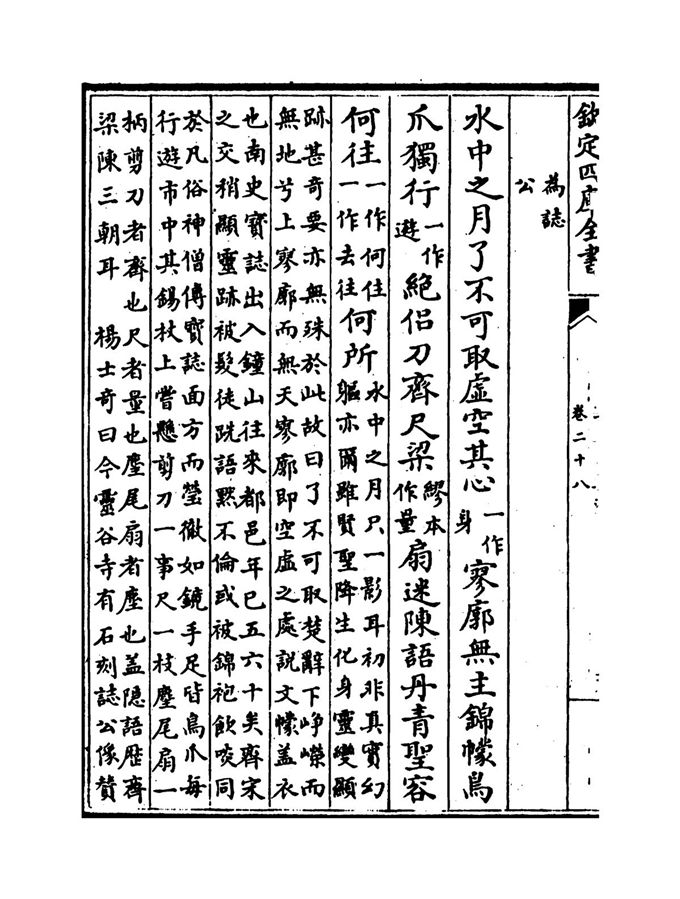 欽定四庫全書
卷二十八
為誌
公
水中之月了不可取虛空其心一作身寥廓無主錦幪鳥
爪獨行一作遊絶侣刀齊尺梁繆本作量扇迷陳語丹青聖容
何往一作何住一作去往何所水中之月只一影耳初非真實幻
軀亦爾雖賢聖降生化身靈變顯
跡甚奇要亦無殊於此故曰了不可取楚辭下峥嶸而
無地兮上寥廓而無天寥廓即空虛之處說文幪盖衣
也南史寶誌出入鐘山往來都邑年已五六十矣齊宋
之交稍顯靈跡被髮徒跣語黙不倫或被錦袍飲啖同
於凡俗神僧傳寶誌面方而瑩徹如鏡手足皆鳥爪每
行遊市中其錫杖上嘗懸剪刀一事尺一枝麈尾扇一
柄剪刀者齊也尺者量也麈尾扇者塵也盖隠語歴齊
梁陳三朝耳 楊士奇曰今靈谷寺有石刻誌公像賛